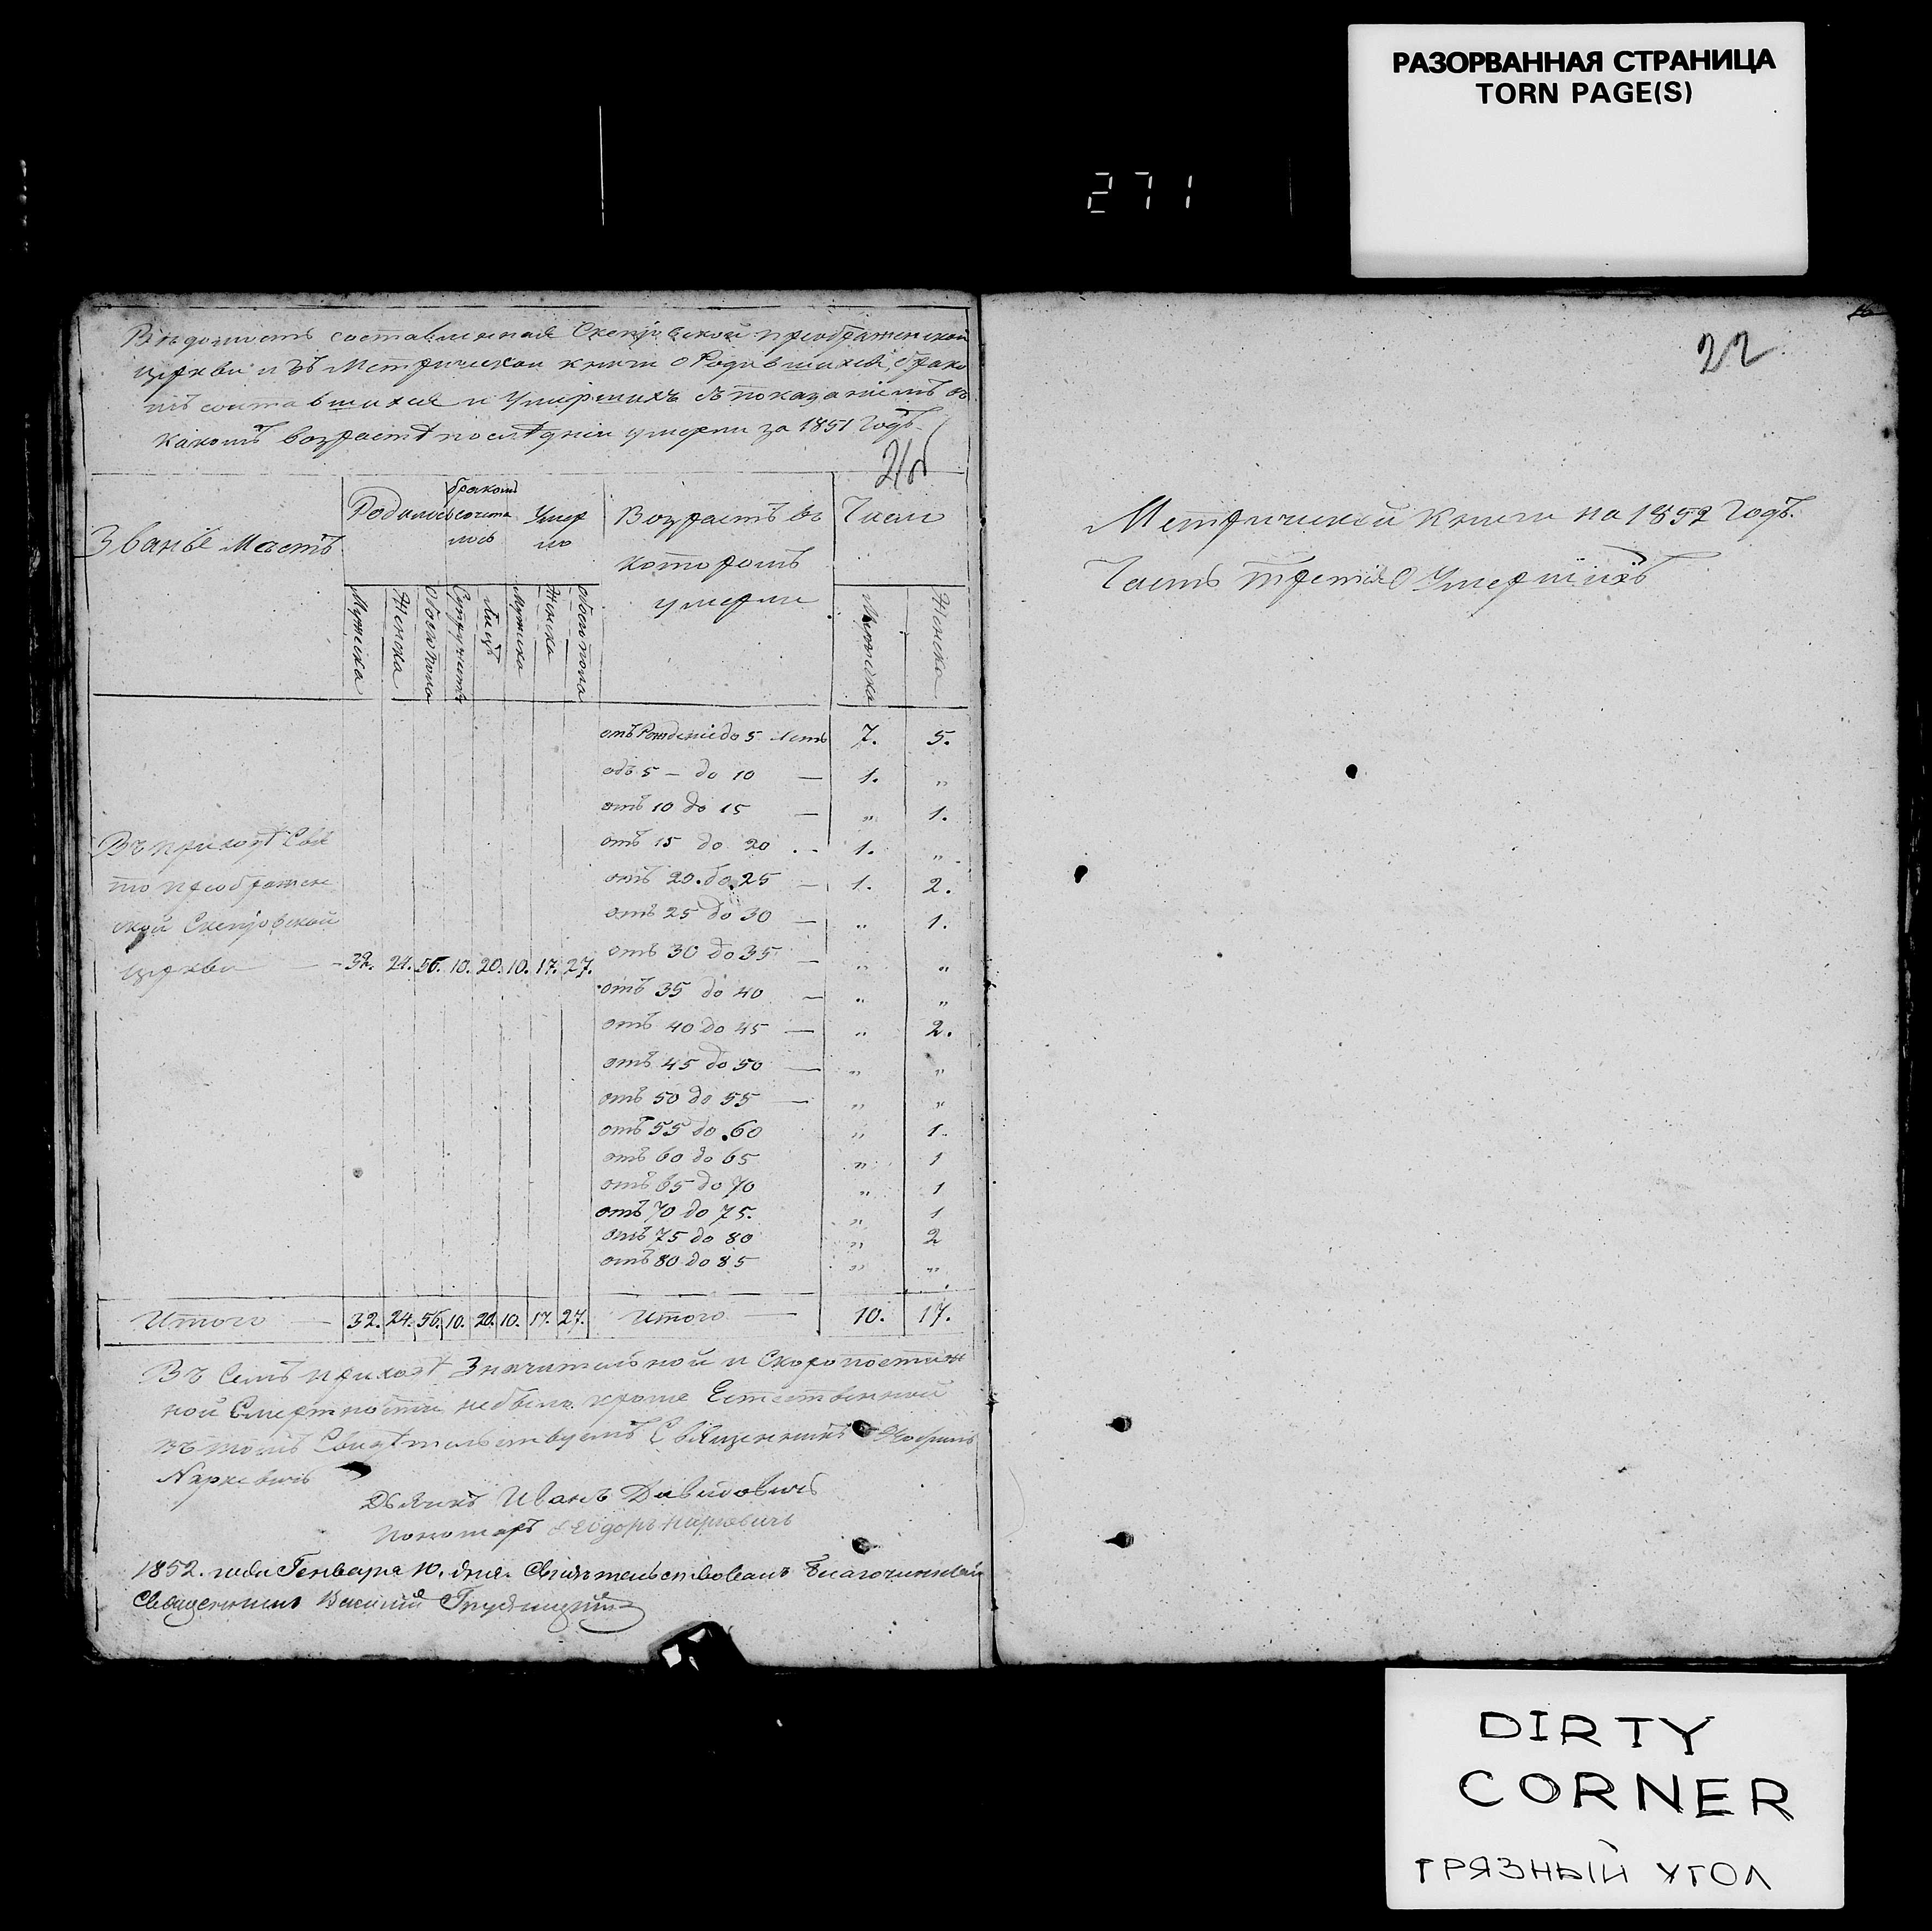 РАЗОРВАННАЯ СТРАНИЦА
TORN PAGE(S)
271
Вѣдомость составленная преображенской
церкви изъ Метрической книги о Родившихся, брако
мъ соитавшихся и Умершихъ съ показаніемъ въ
какомъ возрастѣ послѣдніи умерли за 1851 Годъ.
21об
Званіе Мѣстъ
Родилось
бракомъ сочета лось
Умер ло
Возрастъ въ которомъ умерли
Число
Мужеска
Женска
Обоего пола
Супружествъ
Лицъ
Мужеска
Женска
обоего пола
Мужеска
Женска
отъ Рожденіе до 5 летъ 7. 5.
одъ 5 – до 10 — 1. „
отъ 10 до 15 — „ 1.
отъ 15 до 20 — 1. „
отъ 20. до 25 — 1. 2.
отъ 25 до 30 — „ 1.
отъ 30 до 35 — „ „
отъ 35 до 40 — „ „
отъ 40 до 45 — „ 2.
отъ 45 до 50 — „ „
отъ 50 до 55 — „ „
отъ 55 до 60 „ 1.
отъ 60 до 65 „ 1
отъ 65 до 70 „ 1
отъ 70 до 75. „ 1
отъ 75 до 80 „ 2
отъ 80 до 85 „ „
Въ приходѣ Свя
то преображен
ской
церкви — 32. 24. 56. 10. 20. 10. 17. 27.
Итого — 32. 24. 56. 10. 20. 10. 17. 27. Итого — 10. 17.
Въ Семъ приходѣ Значительной и Скоропостиж
ной Смертности небыло кроме Естественной
въ томъ Свидѣтельствуемъ Священникъ
Наркевичь
Дьячокъ Иванъ Давидовичь
Пономарь Ѳеодоръ Наркевичь
1852. года Генваря 10. дня. Свидѣтельствовалъ Благочинный
Священникъ Василій
16
22
Метрической Книги на 1852 Годъ.
Часть третія О Умершихъ
DIRTY
CORNER
ГРЯЗНЫЙ УГОЛ